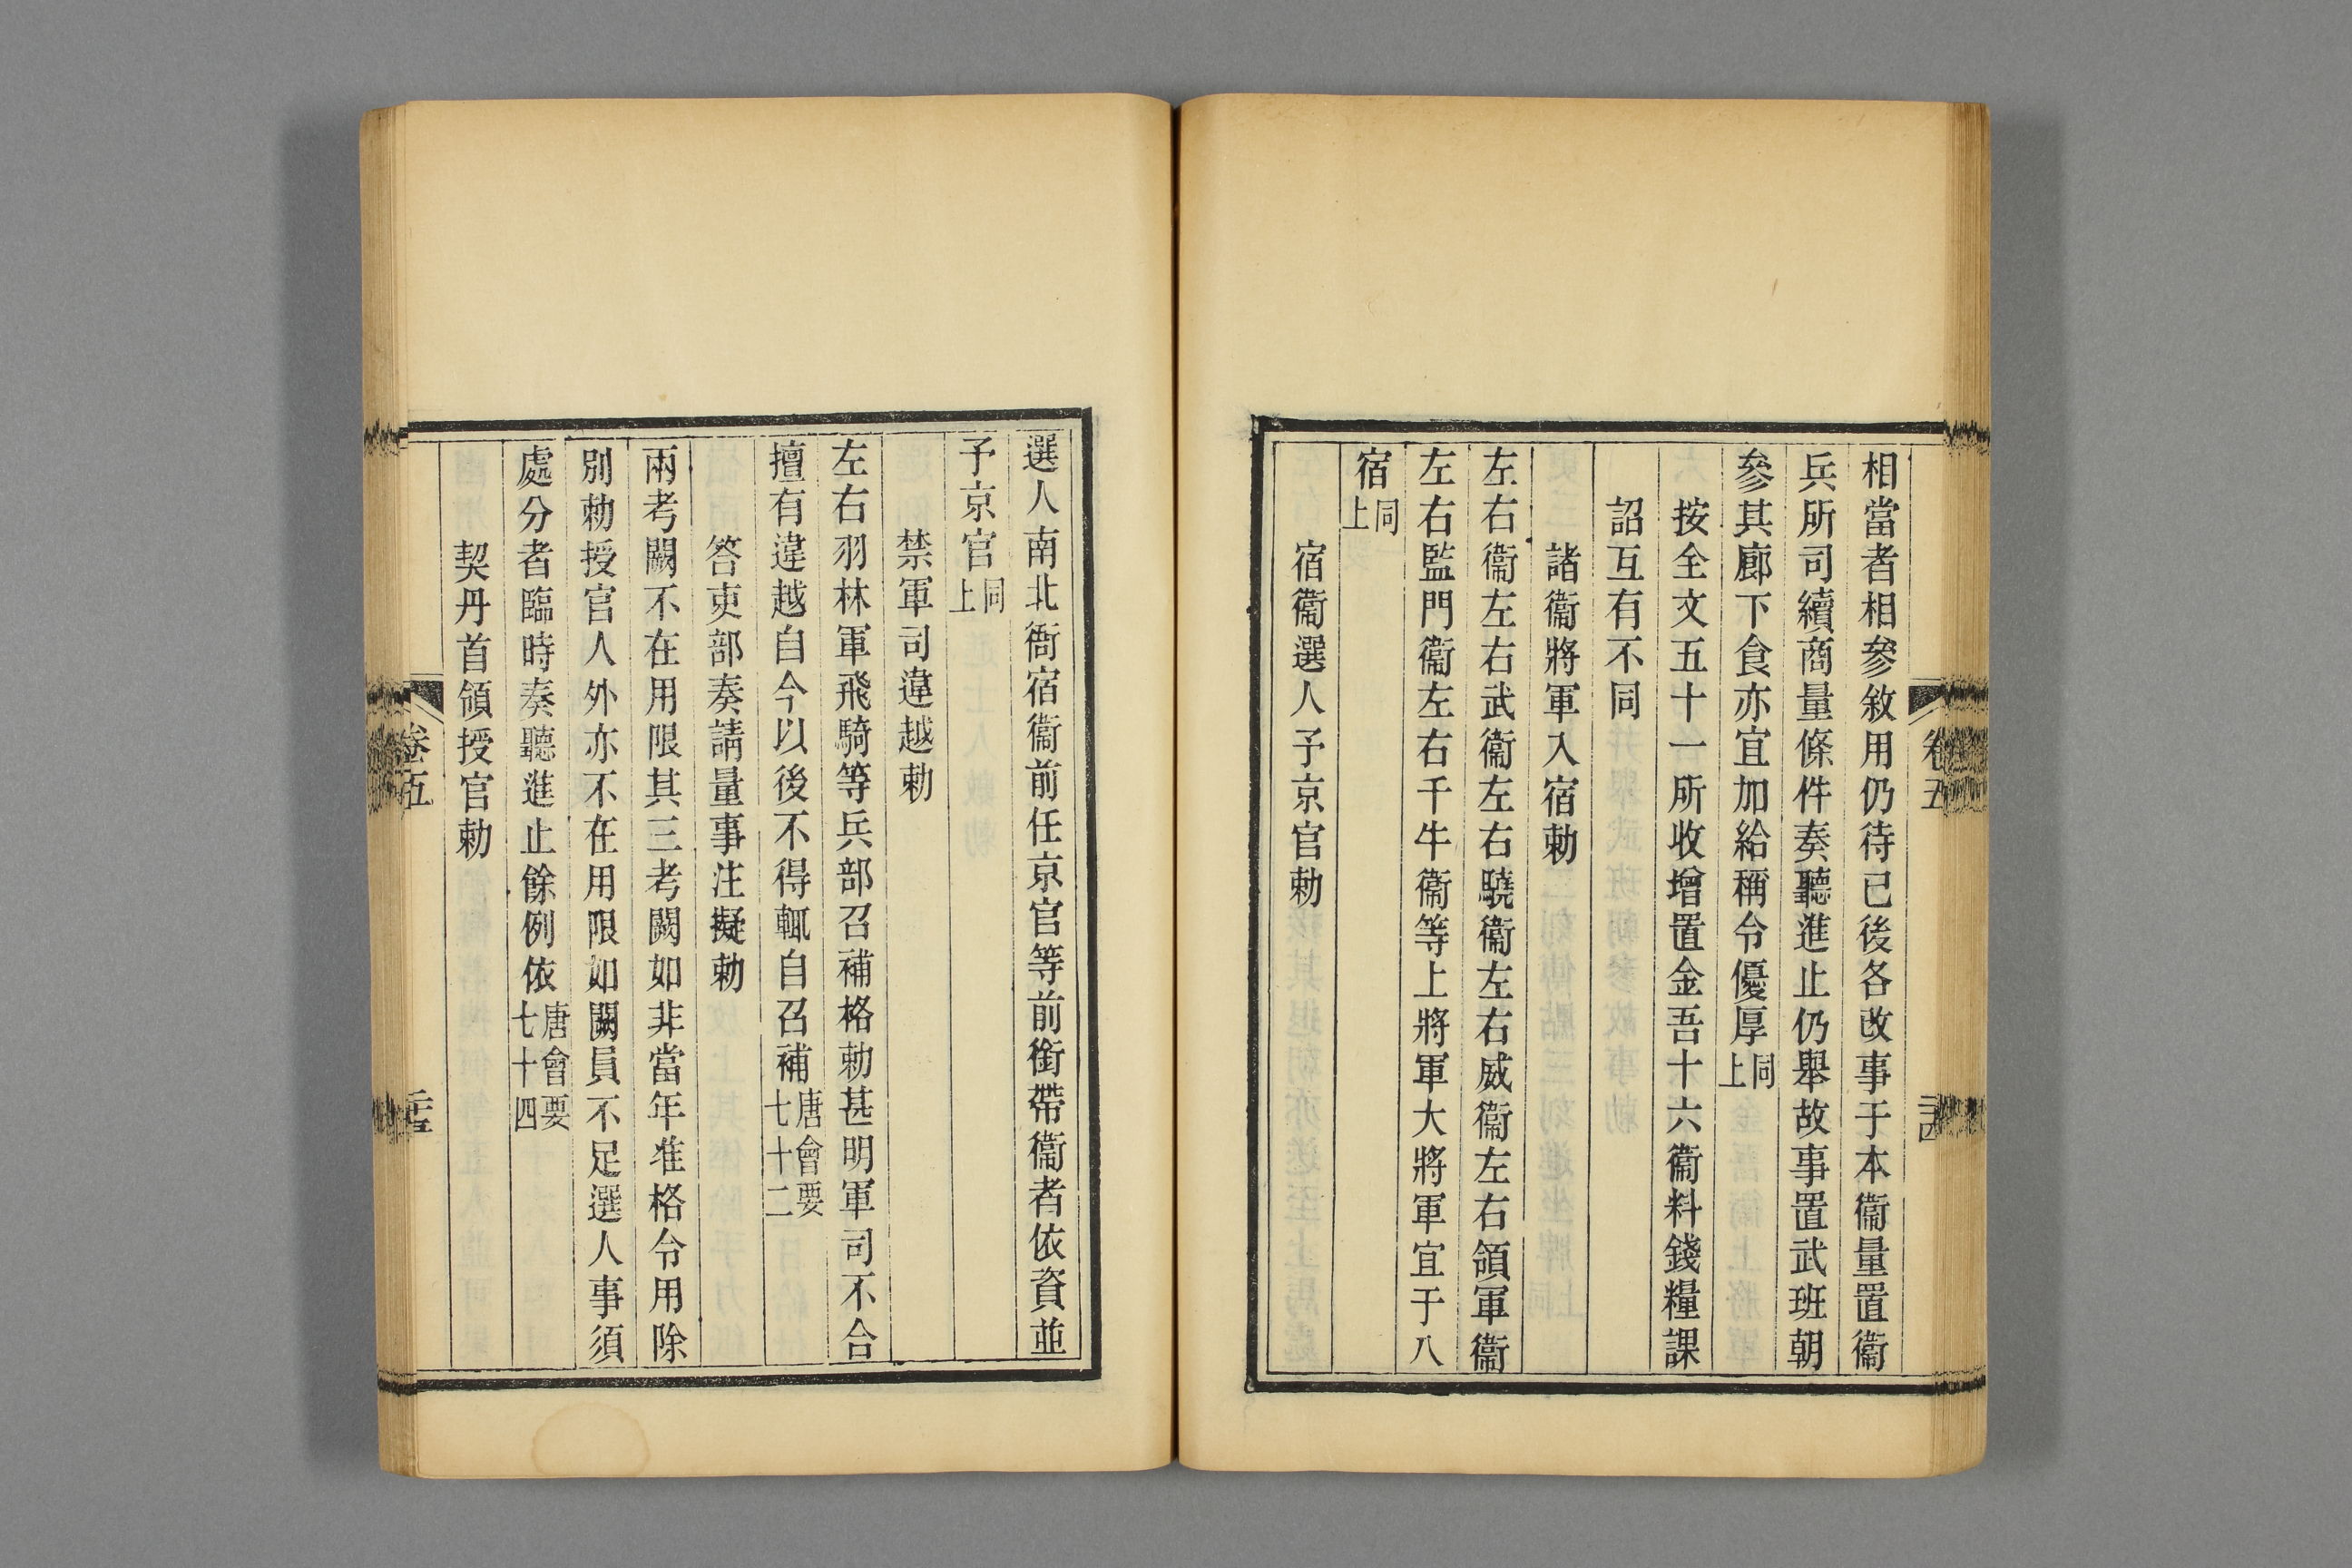 相當者相參敘用仍待已後各改事于本衞量置衞
兵所司續商量條件奏聽進止仍舉故事置武班朝
參其廊下食亦宜加給稱令優厚同上
按全文五十一所收增置金吾十六衞料錢糧課
詔互有不同
諸衞將軍入宿勅
左右衞左右武衞左右驍衞左右威衞左右領軍衞
左右監門衞左右千牛衞等上將軍大將軍宜于八
宿同上
宿衞選人予京官勅
選人南北衙宿衞前任京官等前銜帶衞者依資並
予京官同上
禁軍司違越勅
左右羽林軍飛騎等兵部召補格勅甚明軍司不合
擅有違越自今以後不得輒自召補唐會要七十二
答吏部奏請量事注擬勅
兩考闕不在用限其三考闕如非當年准格令用除
別勅授官人外亦不在用限如闕員不足選人事須
處分者臨時奏聽進止餘例依唐會要七十四
契丹首領授官勅
卷五
卷五